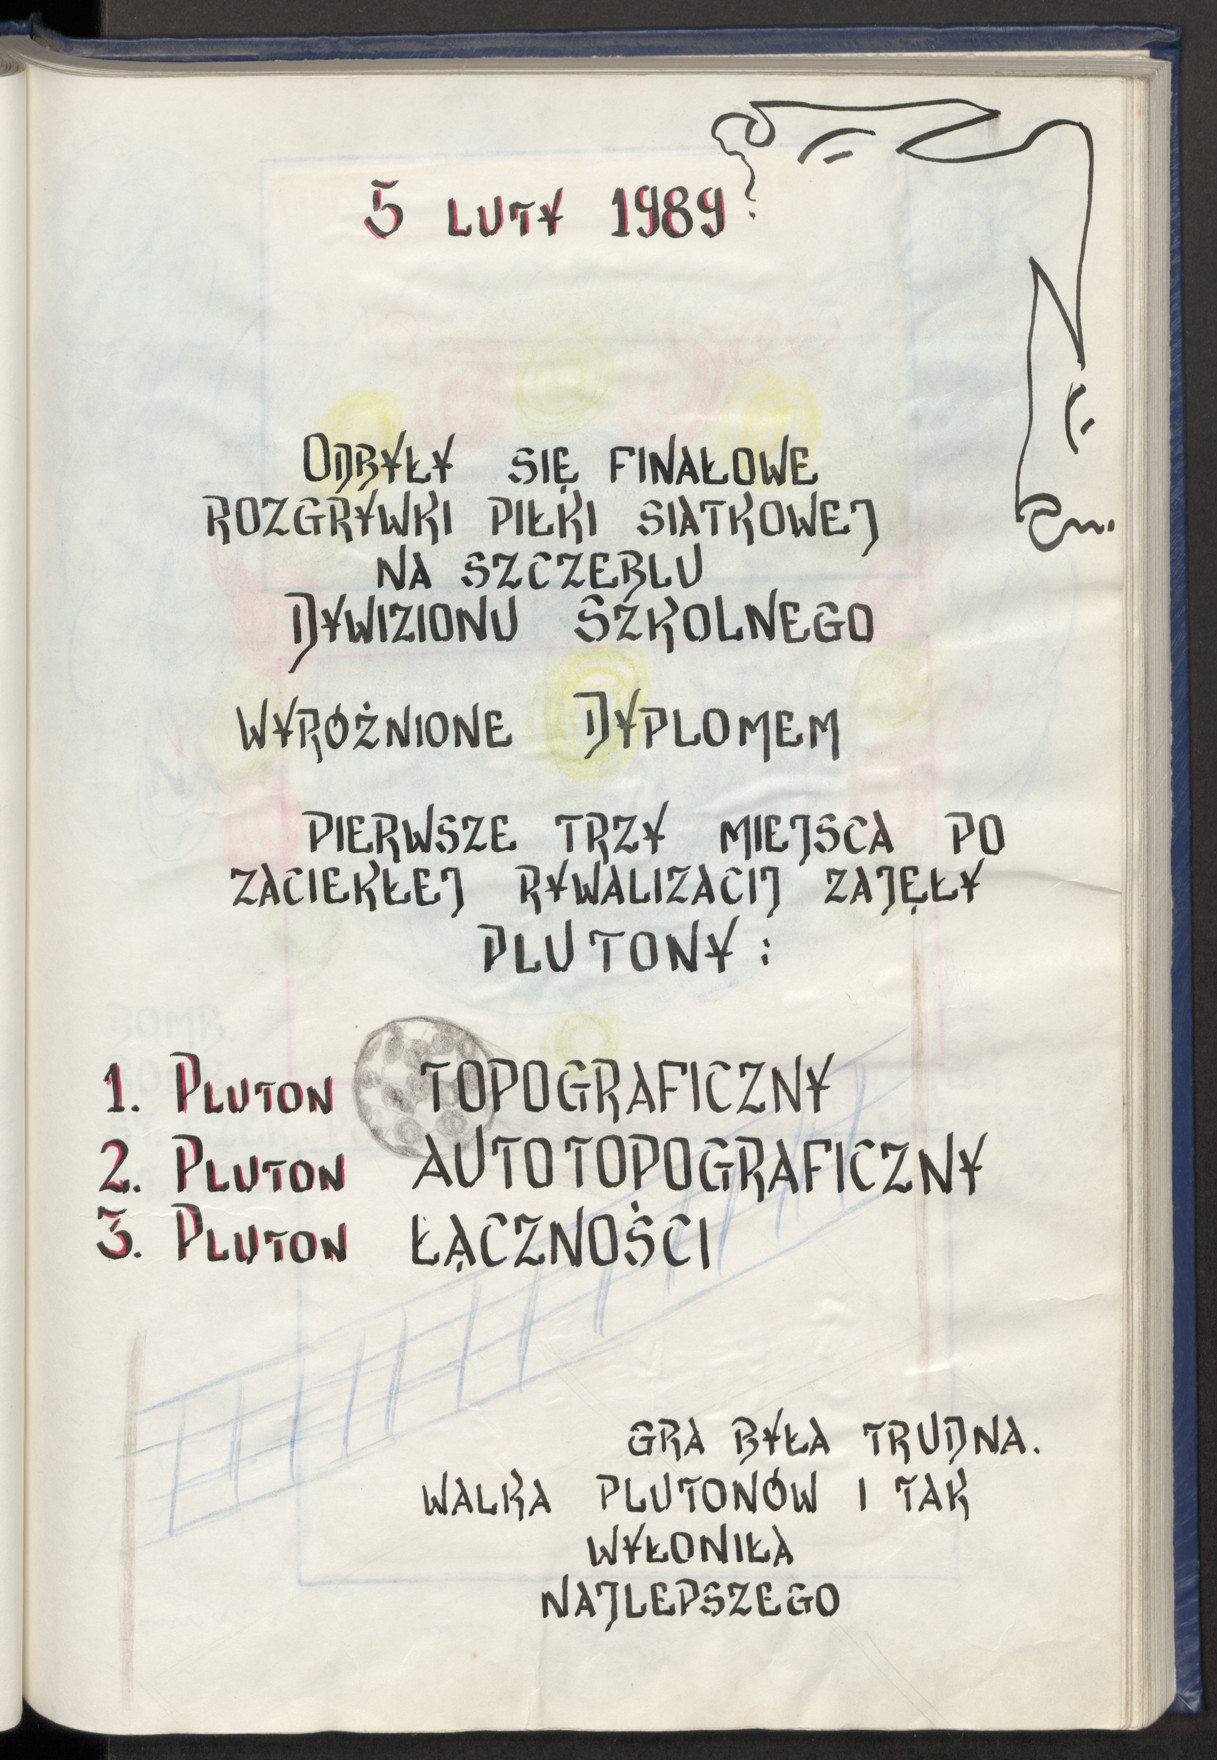 5 LUTY 1989
ODBYŁY SIĘ FINAŁOWE
ROZGRYWKI PIŁKI SIATKOWEJ
NA SZCZEBLU
DYWIZIONU SZKOLNEGO
WYRÓŻNIONE DYPLOMEM
PIERWSZE TRZY MIEJSCA PO
ZACIEKŁEJ RYWALIZACIJ ZAJĘŁY
PLUTONY:
1. PLUTON TOPOGRAFICZNY
2. PLUTON AUTOTOPOGRAFICZNY
3. PLUTON ŁĄCZNOŚCI
GRA BYŁA TRUDNA.
WALKA PLUTONÓW I TAK
WYŁONIŁA
NAJLEPSZEGO